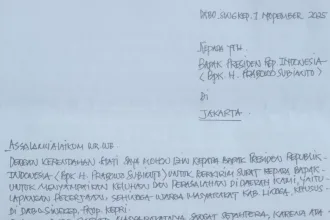 DABO SINGKEP, 7 NOPEMBER 2025
KEPADA YTH.
BAPAK PRESIDEN REP. INDONESIA
(BPK. H. PRABOWO SUBIANTO)
DI
JAKARTA
ASSALAMUALAIKUM WR. WB.
DENGAN KERENDAHAN HATI SAYA MOHON IZIN KEPADA BAPAK PRESIDEN REPUBLIK
INDONESIA (BPK H. PRABOWO SUBIANTO) UNTUK BERKIRIM SURAT KEPADA BAPAK
UNTUK MENYAMPAIKAN KELUHAN DAN PERMASALAHAN DI DAERAH KAMI, YAITU
LAPANGAN PEKERJAAN, SEHINGGA WARGA MASYARAKAT KAB. LINGGA, KHUSUS
DI DABO SINGKEP - PROP. KEPRI
SANGAT KARENA ADA